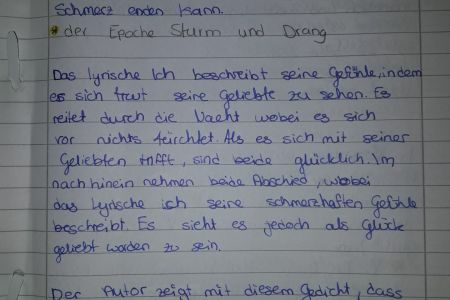 Schmerz enden kann.
* der Epoche Sturm und Drang
Das lyrische Ich beschreibt seine Gefühle, indem
es sich traut seine Geliebte zu sehen. Es
reitet durch die Nacht wobei es sich
vor nichts fürchtet. Als es sich mit seiner
Geliebten trifft, sind beide glücklich. Im
nachhinein nehmen beide Abschied, wobei
das Lyrische ich seine schmerzhaften Gefühle
beschreibt. Es sieht es jedoch als Glück
geliebt worden zu sein.
Der Autor zeigt mit diesem Gedicht, dass